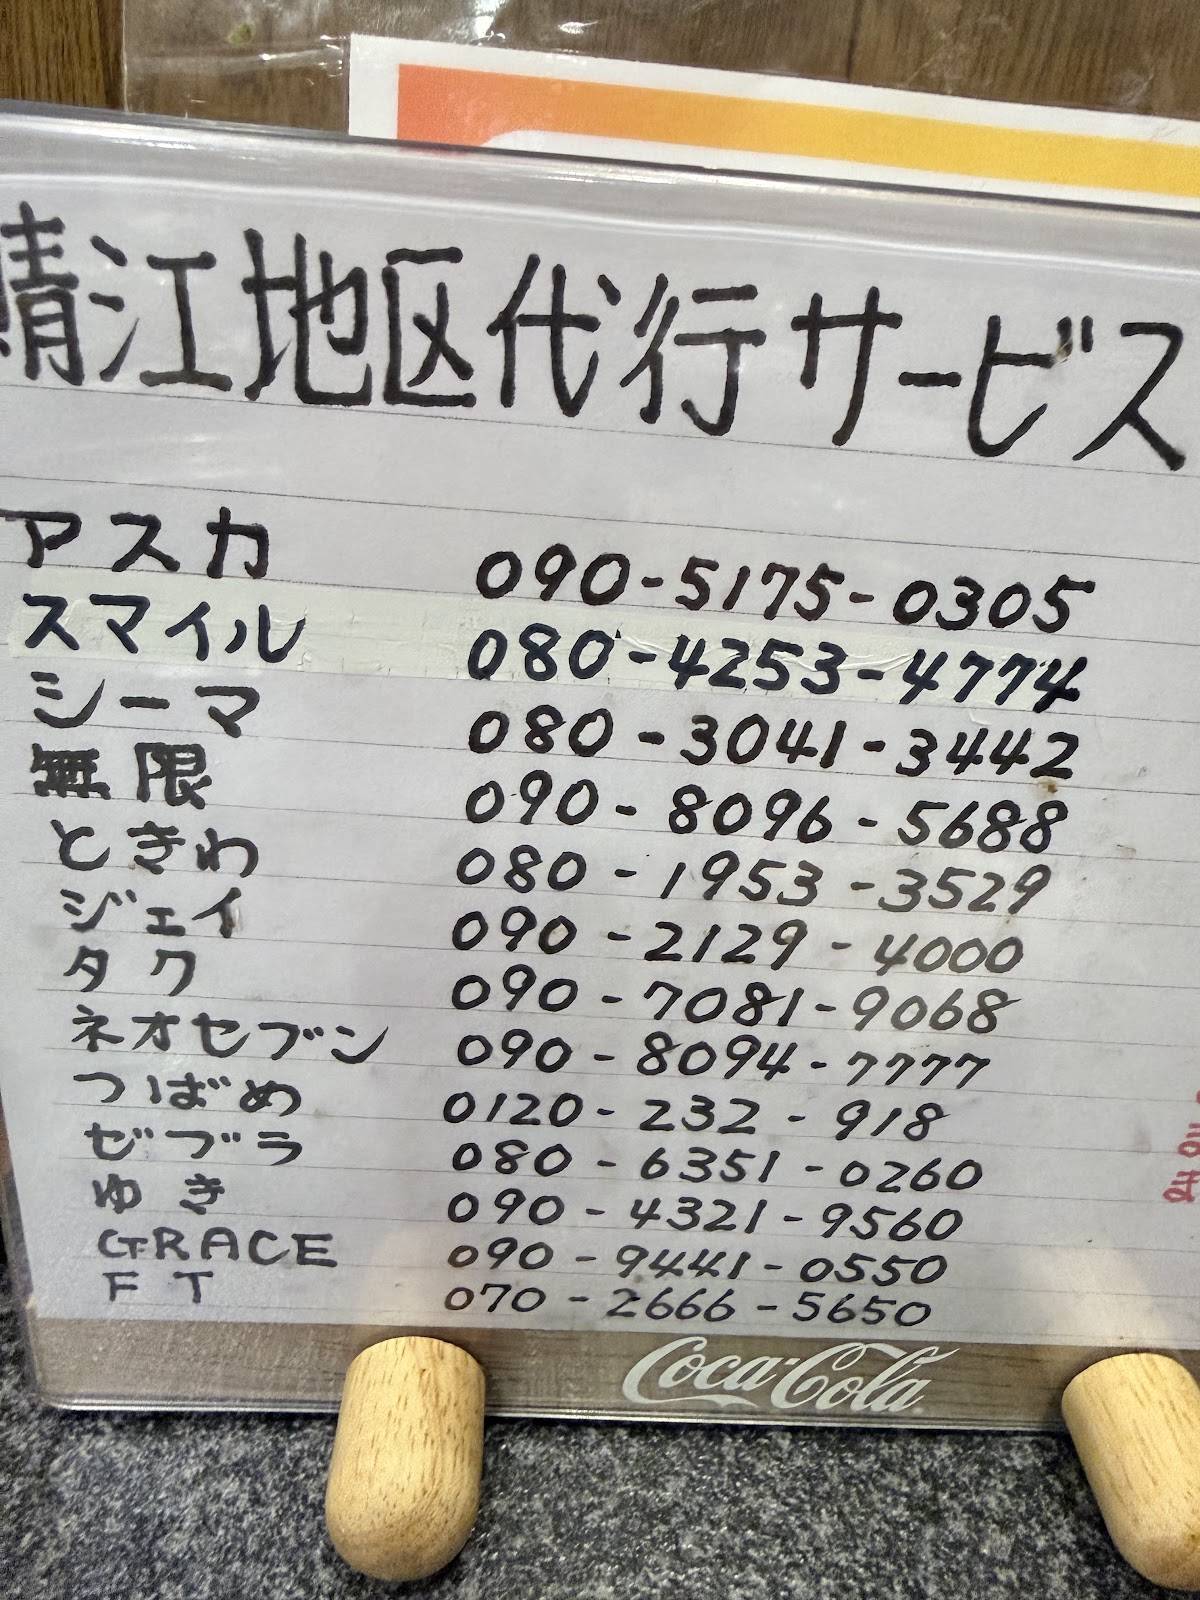 鯖江地区代行サービス
アスカ 090-5175-0305
スマイル 080-4253-4774
シーマ 080-3041-3442
無限 090-8096-5688
ときわ 080-1953-3529
ジェイ 090-2129-4000
タク 090-7081-9068
ネオセブン 090-8094-7777
つばめ 0120-232-918
ゼブラ 080-6351-0260
ゆき 090-4321-9560
GRACE 090-9441-0550
FT 070-2666-5650
Coca-Cola